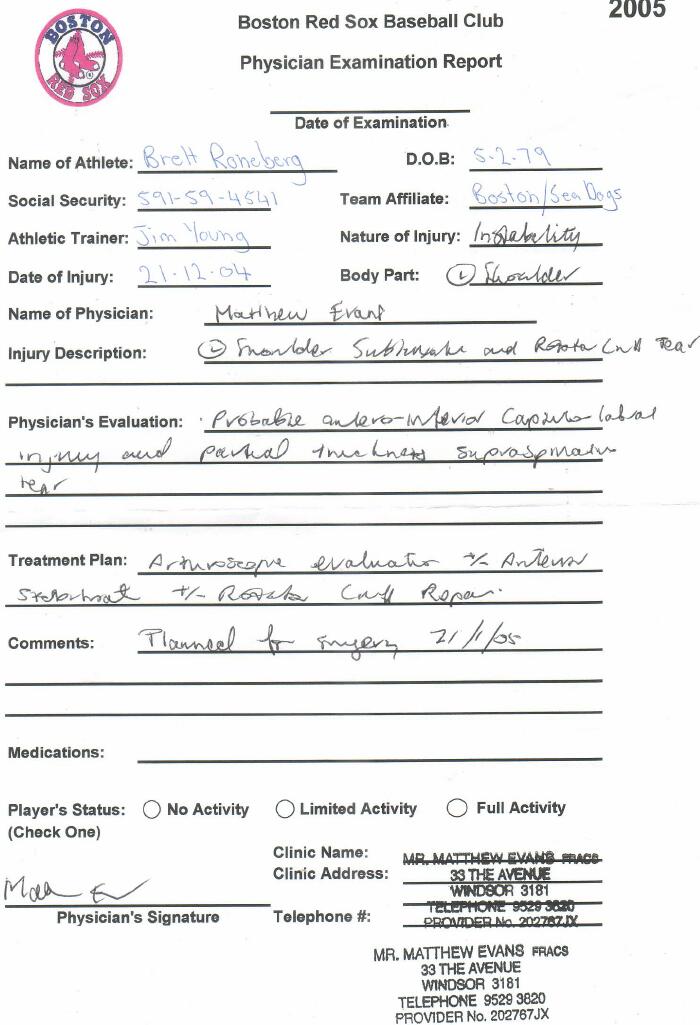 2005
BOSTON
RED SOX
Boston Red Sox Baseball Club
Physician Examination Report
Date of Examination
Name of Athlete: Brett Roneberg D.O.B: 5-2-79
Social Security: 591-59-4541 Team Affiliate: Boston/Sea Dogs
Athletic Trainer: Jim Young Nature of Injury: Instability
Date of Injury: 21-12-04 Body Part: (L) Shoulder
Name of Physician: Matthew Evans
Injury Description: (L) Shoulder and Rotator Cuff Tear
Physician's Evaluation: Probable antero-inferior Capsulo labral
injury and partial thickness supraspinatus
tear
Treatment Plan: Arthroscopic evaluation +/- Anterior
+/- Rotator Cuff Repair.
Comments: Planned for surgery 21/1/05
Medications:
Player's Status: No Activity Limited Activity Full Activity
(Check One)
Clinic Name: MR. MATTHEW EVANS FRACS
Clinic Address: 33 THE AVENUE
WINDSOR 3181
TELEPHONE 9529 3820
Physician's Signature Telephone #: PROVIDER No. 202767JX
MR. MATTHEW EVANS FRACS
33 THE AVENUE
WINDSOR 3181
TELEPHONE 9529 3820
PROVIDER No. 202767JX